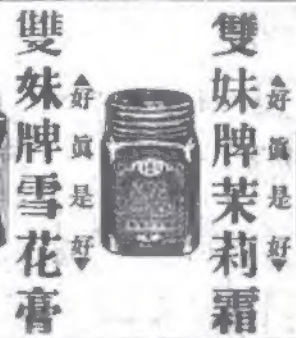 雙妹牌茉莉霜
▲好真是好▼
雙妹牌雪花膏
▲好真是好▼